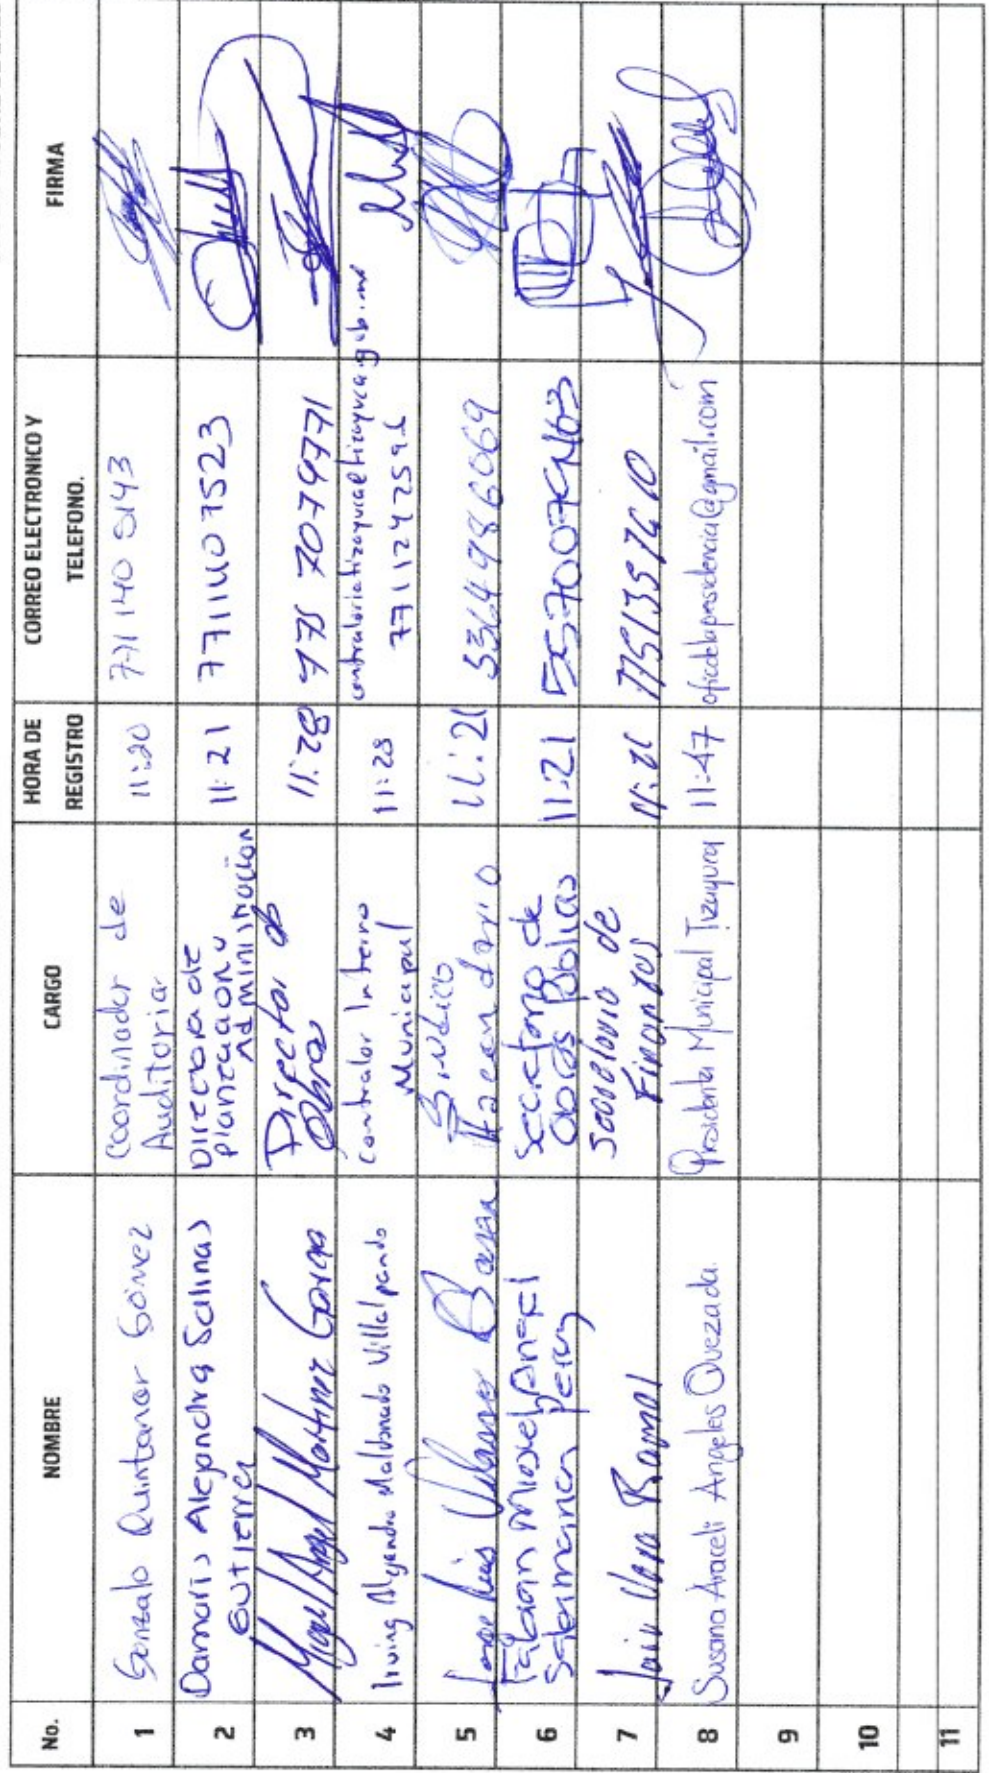 No. NOMBRE CARGO HORA DE REGISTRO CORREO ELECTRONICO Y TELEFONO. FIRMA
1 Gonzalo Quintanar Gómez Coordinador de Auditoria 11:20 771 140 5143
2 Damaris Alejandra Salinas Gutierrez Directora de planeacion y Administracion 11:21 7711407523
3 Miguel Angel Martinez Garcia Director de Obra 11:28 775 7079771
4 Irving Alejandro Maldonado Villalpando Contralor Interno Municipal 11:28 7711242592
5 Jose Luis Bazan Sindico Hacendario 11:21
6 Fabian Miguel Angel Salamanca Perez Secretario de Obras Publicas 11:21
7 Jair Vera Ramos Secretario de Finanzas
8 Susana Araceli Angeles Quezada. Presidenta Municipal Tizayuca 11:47 oficdelapresidencia@gmail.com
9
10
11